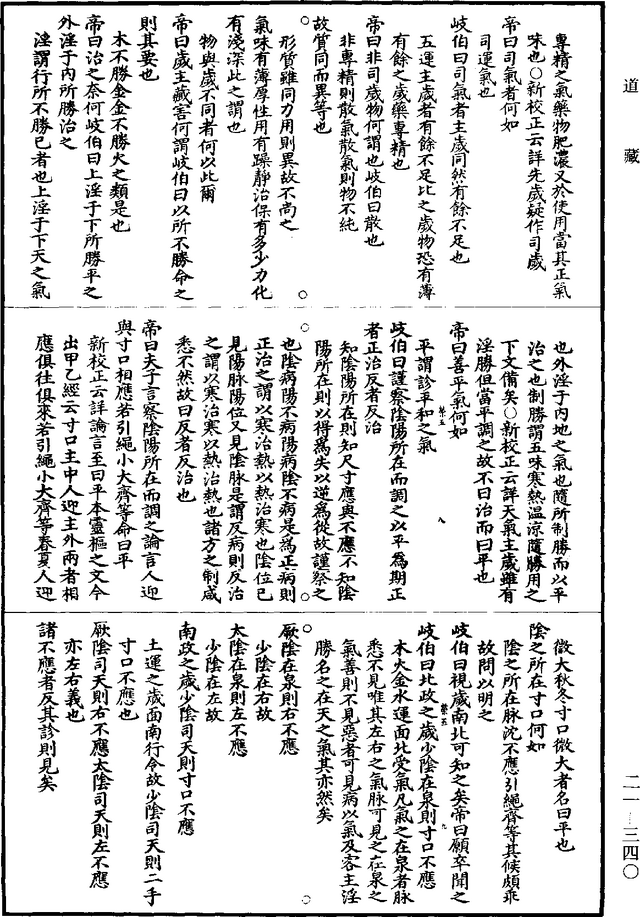 道藏
專精之氣藥物肥濃又於使用當其正氣
味也○新校正云詳先歲疑作司歲
帝曰司氣者何如
司運氣也
岐伯曰司氣者主歲同然有餘不足也
五運主歲者有餘不足比之歲物恐有薄
有餘之歲藥專精也
帝曰非司歲物何謂也岐伯曰散也
非專精則散氣散氣則物不純
故質同而異等也
形質雖同力用則異故不尚之
氣味有薄厚性用有躁靜治保有多少力化
有淺深此之謂也
物與歲不同者何以此爾
帝曰歲主藏害何謂岐伯曰以所不勝命之
則其要也
木不勝金金不勝火之類是也
帝曰治之奈何岐伯曰上淫于下所勝平之
外淫于內所勝治之
淫謂行所不勝已者也上淫于下天之氣
也外淫于內地之氣也隨所制勝而以平
治之也制勝謂五味寒熱溫涼隨勝用之
下文備矣○新校正云詳天氣主歲雖有
淫勝但當平調之故不曰治而曰平也
帝曰善平氣何如
平謂診平和之氣
岐伯曰謹察陰陽所在而調之以平為期正
者正治反者反治
知陰陽所在則知尺寸應與不應不知陰
陽所在則以得為失以逆為從故謹察之
也陰病陽不病陽病陰不病是為正病則
正治之謂以寒治熱以熱治寒也陰位已
見陽脉陽位又見陰脉是謂反病則反治
之謂以寒治寒以熱治熱也諸方之制咸
悉不然故曰反者反治也
帝曰夫子言察陰陽所在而調之論言人迎
與寸口相應若引繩小大齊等命曰平
新校正云詳論言至曰平本靈樞之文今
出甲乙經云寸口主中人迎主外兩者相
應俱往俱來若引繩小大齊等春夏人迎
微大秋冬寸口微大者名曰平也
陰之所在寸口何如
陰之所在脉沈不應引繩齊等其候頗乖
故問以明之
岐伯曰視歲南北可知之矣帝曰願卒聞之
岐伯曰北政之歲少陰在泉則寸口不應
木火金水運面北受氣凡氣之在泉者脉
悉不見唯其左右之氣脉可見之在泉之
氣善則不見惡者可見病以氣及客主淫
勝名之在天之氣其亦然矣
厥陰在泉則右不應
少陰在右故
太陰在泉則左不應
少陰在左故
南政之歲少陰司天則寸口不應
土運之歲面南行令故少陰司天則二手
寸口不應也
厥陰司天則右不應太陰司天則左不應
亦左右義也
諸不應者反其診則見矣
二一—三四〇